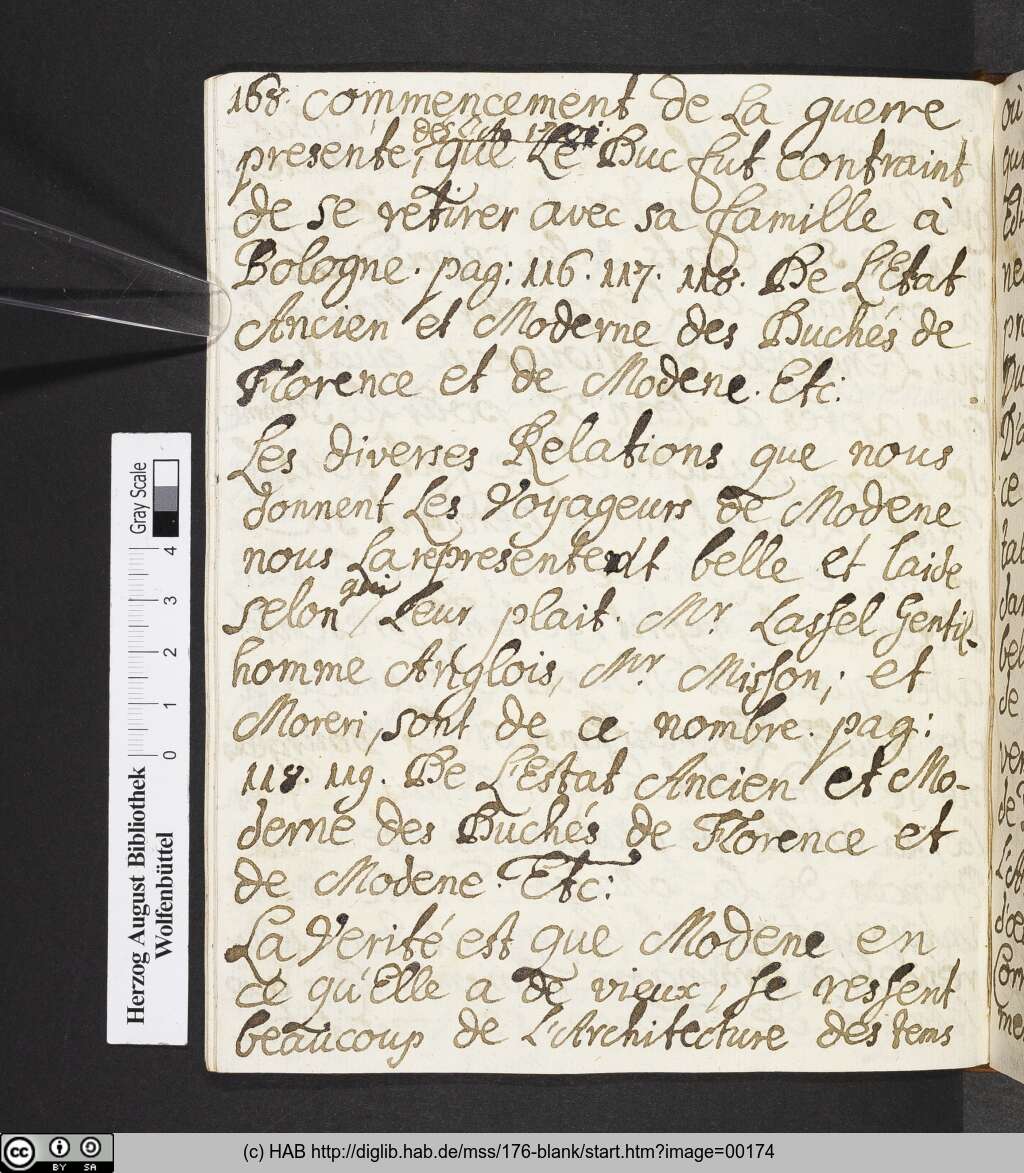 168. commencement de La guerre
presente, que Le Duc fut contraint
de se retirer avec sa famille à
Bologne. pag: 116. 117. 118. De L'Etat
Ancien et Moderne des Duchés de
Florence et de Modene. Etc:
Les diverses Relations que nous
donnent Les Voyageurs de Modene
nous La representent belle et laide
selon qu'il Leur plait. Mr. Lassel Gentil-
homme Anglois, Mr. Misson, et
Moreri, sont de ce nombre. pag:
118. 119. De L'Estat Ancien et Mo-
derne des Duchés de Florence et
de Modene. Etc:
La Verité est que Modene en
ce qu'Elle a de vieux, se ressent
beaucoup de L'Architecture des tems
Gray Scale
0 1 2 3 4
Herzog August Bibliothek
Wolfenbüttel
cc BY SA
(c) HAB http://diglib.hab.de/mss/176-blank/start.htm?image=00174